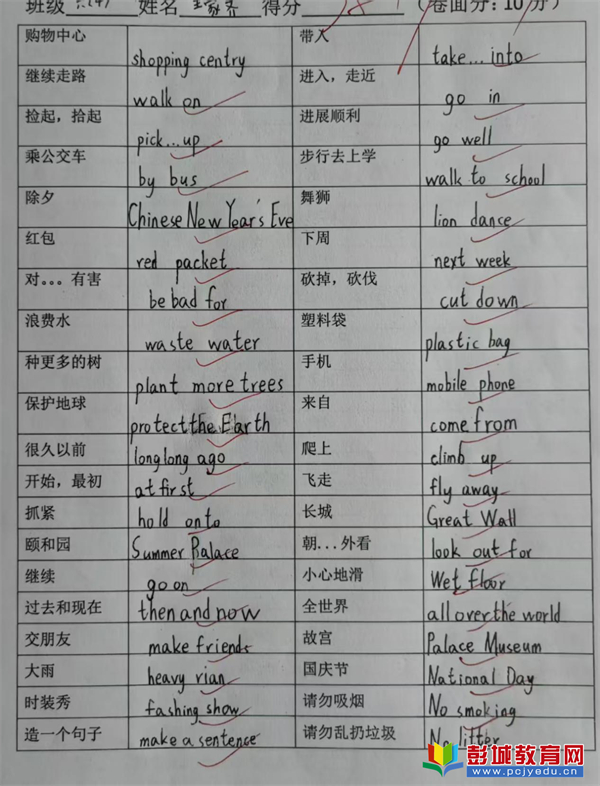 班级 六(4) 姓名 王家齐 得分 （卷面分：10分）
购物中心 shopping centry 带入 take...into
继续走路 walk on 进入，走近 go in
捡起，拾起 pick...up 进展顺利 go well
乘公交车 by bus 步行去上学 walk to school
除夕 Chinese New Year's Eve 舞狮 lion dance
红包 red packet 下周 next week
对。。。有害 be bad for 砍掉，砍伐 cut down
浪费水 waste water 塑料袋 plastic bag
种更多的树 plant more trees 手机 mobile phone
保护地球 protect the Earth 来自 come from
很久以前 long long ago 爬上 climb up
开始，最初 at first 飞走 fly away
抓紧 hold onto 长城 Great Wall
颐和园 Summer Palace 朝...外看 look out for
继续 go on 小心地滑 Wet floor
过去和现在 then and now 全世界 all over the world
交朋友 make friends 故宫 Palace Museum
大雨 heavy rian 国庆节 National Day
时装秀 fashing show 请勿吸烟 No smoking
造一个句子 make a sentence 请勿乱扔垃圾 No litter
彭城教育网
www.pcjyedu.cn